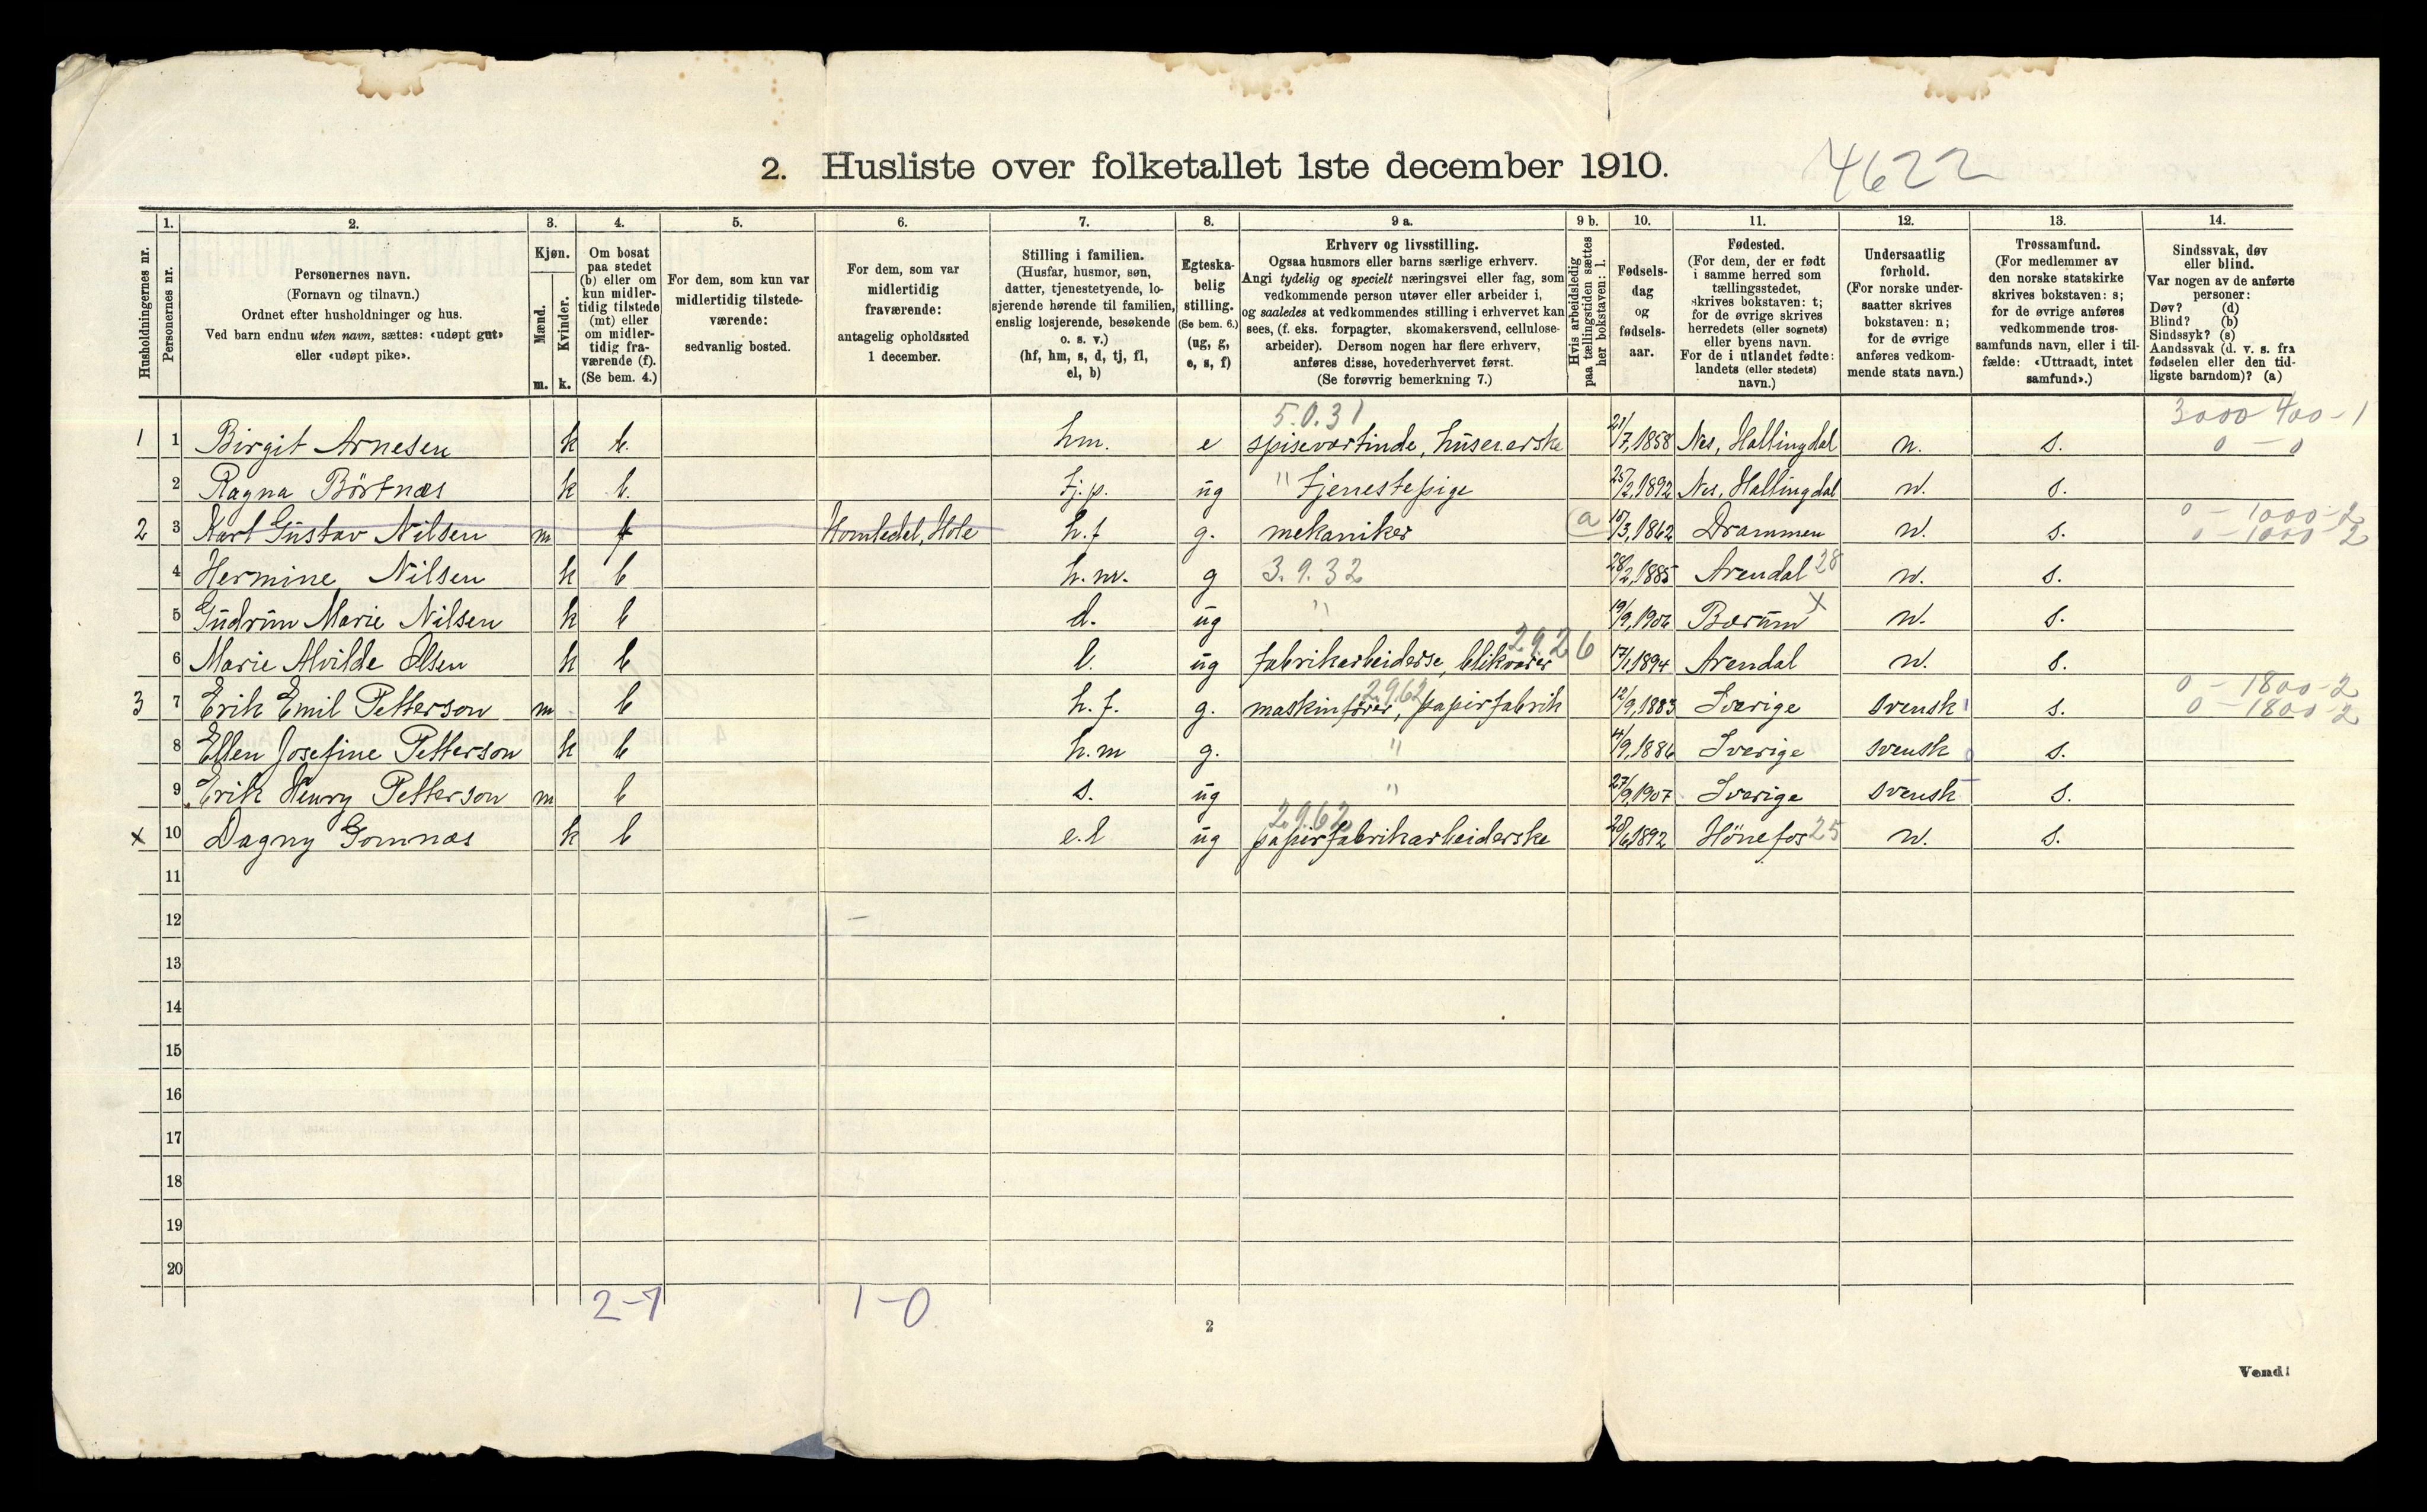 2. Husliste over folketallet 1ste december 1910.
4622
Husholdningernes nr.
1.
Personernes nr.
2.
Personernes navn.
(Fornavn og tilnavn.)
Ordnet efter husholdninger og hus.
Ved barn endnu uten navn, sættes: «udøpt gut»
eller «udøpt pike».
3.
Kjøn.
Mænd.
m.
Kvinder.
k.
4.
Om bosat
paa stedet
(b) eller om
kun midler-
tidig tilstede
(mt) eller
om midler-
tidig fra-
værende (f).
(Se bem. 4.)
5.
For dem, som kun var
midlertidig tilstede-
værende:
sedvanlig bosted.
6.
For dem, som var
midlertidig
fraværende:
antagelig opholdssted
1 december.
7.
Stilling i familien.
(Husfar, husmor, søn,
datter, tjenestetyende, lo-
sjerende hørende til familien,
enslig losjerende, besøkende
o. s. v.)
(hf, hm, s, d, tj, fl,
el, b)
8.
Egteska-
belig
stilling.
(Se bem. 6.)
(ug, g,
e, s, f)
9 a.
Erhverv og livsstilling.
Ogsaa husmors eller barns særlige erhverv.
Angi tydelig og specielt næringsvei eller fag, som
vedkommende person utøver eller arbeider i,
og saaledes at vedkommendes stilling i erhvervet kan
sees, (f. eks. forpagter, skomakersvend, cellulose-
arbeider). Dersom nogen har flere erhverv,
anføres disse, hovederhvervet først.
(Se forøvrig bemerkning 7.)
9 b.
Hvis arbeidsledig
paa tællingstiden sættes
her bokstaven: l.
10.
Fødsels-
dag
og
fødsels-
aar.
11.
Fødested.
(For dem, der er født
i samme herred som
tællingsstedet,
skrives bokstaven: t;
for de øvrige skrives
herredets (eller sognets)
eller byens navn.
For de i utlandet fødte:
landets (eller stedets)
navn.)
12.
Undersaatlig
forhold.
(For norske under-
saatter skrives
bokstaven: n;
for de øvrige
anføres vedkom-
mende stats navn.)
13.
Trossamfund.
(For medlemmer av
den norske statskirke
skrives bokstaven: s;
for de øvrige anføres
vedkommende tros-
samfunds navn, eller i til-
fælde: «Uttraadt, intet
samfund».)
14.
Sindssvak, døv
eller blind.
Var nogen av de anførte
personer:
Døv? (d)
Blind? (b)
Sindssyk? (s)
Aandssvak (d. v. s. fra
fødselen eller den tid-
ligste barndom)? (a)
5.0.31 3000-400-1
1 1 Birgit Arnesen k b. hm. e spisevertinde, huseierske 21/7,1858 Nes, Hallingdal n. s. 0 - 0
2 Ragna Börtnæs k b. tj.p. ug " Tjenestepige 25/2,1892 Nes, Hallingdal n. s.
0 - 1000-2
2 3 Karl Gustav Nilsen m f Homledal, Hole h.f g. mekaniker (a 15/3,1862 Drammen n. s. 0 - 1000-2
4 Hermine Nilsen k b h.m. g 3.9.32 28/2,1885 Arendal 28 n. s.
5 Gudrun Marie Nilsen k b d. ug " 19/9,1906 Bærum x n. s.
2926
6 Marie Alvilde Olsen k b l. ug fabrikarbeiderse, blikvarer 17/1,1894 Arendal n. s.
2962 0 - 1800-2
3 7 Erik Emil Petterson m b h.f. g. maskinfører, papirfabrik 12/9,1883 Sverige svensk s. 0 - 1800-2
8 Ellen Josefine Petterson k b h.m g. " 4/9,1886 Sverige svensk s.
9 Erik Henry Petterson m b s. ug " 27/9,1907 Sverige svensk s.
2962
x 10 Dagny Gomnæs k b e.l ug papirfabrikarbeiderske 28/6,1892 Hönefos 25 n. s.
11
12
13
14
15
16
17
18
19
20
2-7 1-0
2
Vend!